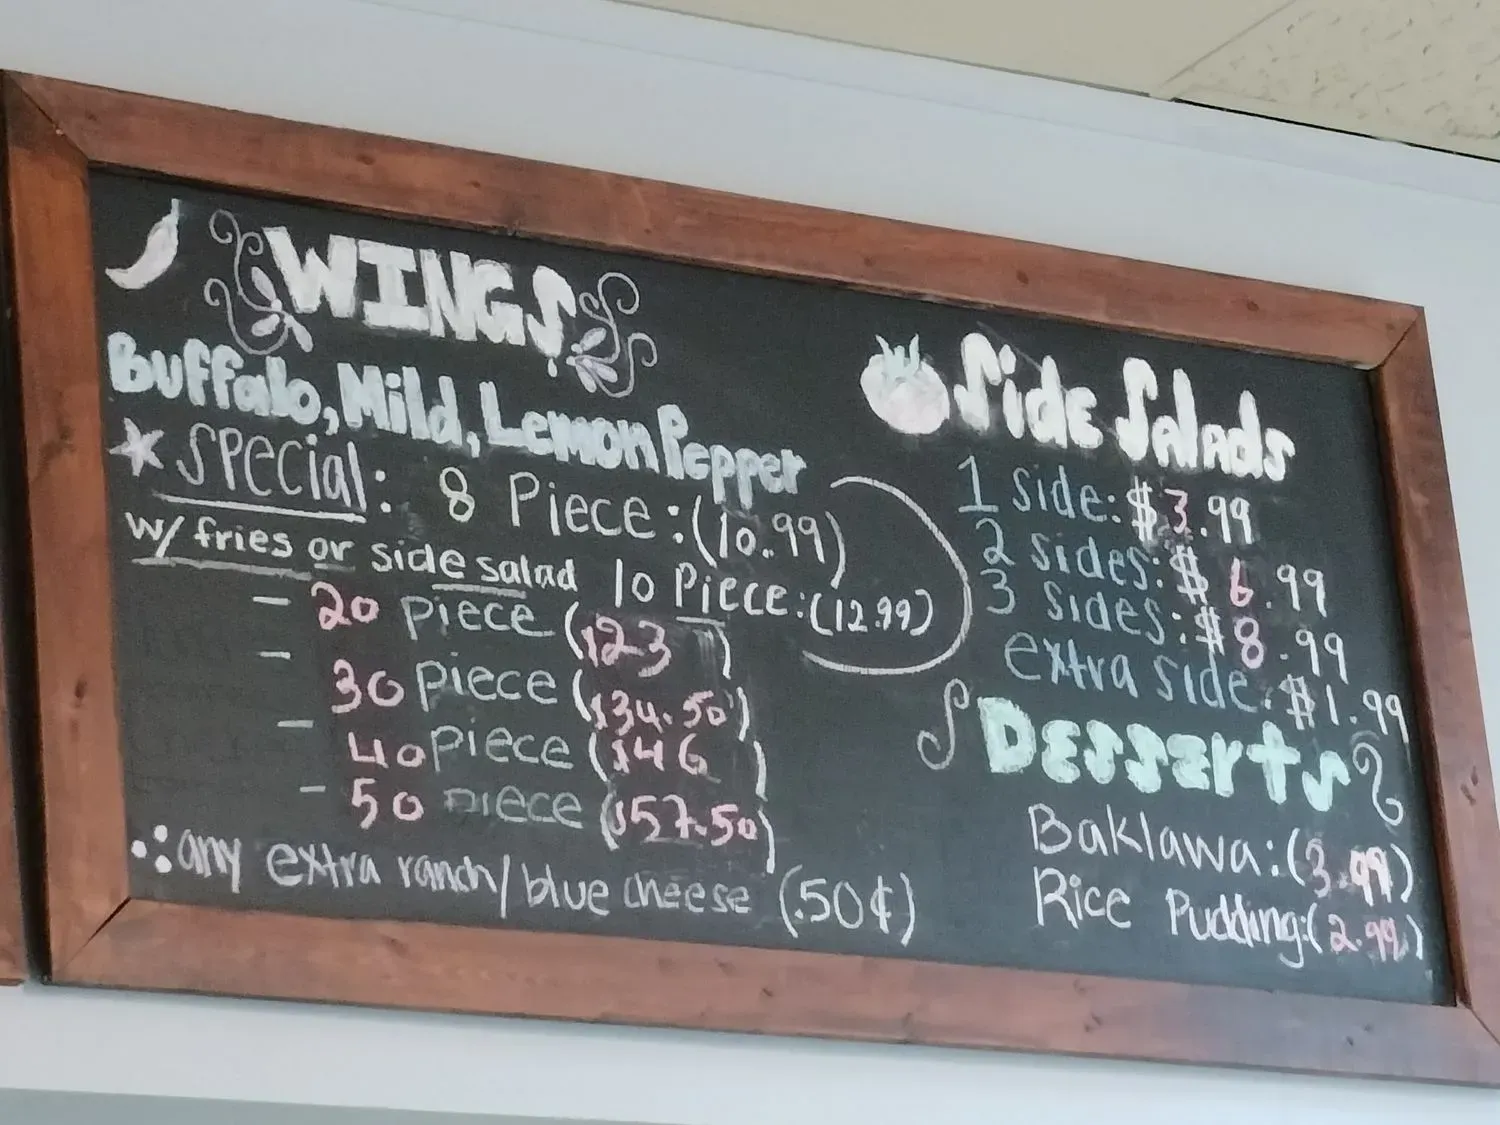 WINGS
Buffalo, Mild, Lemon Pepper
* Special: 8 Piece: (10.99)
w/ fries or side salad 10 Piece: (12.99)
- 20 piece ($23)
- 30 piece ($34.50)
- 40 piece ($46)
- 50 piece ($57.50)
any extra ranch/blue cheese (.50¢)
Side Salads
1 side: $3.99
2 sides: $6.99
3 sides: $8.99
extra side: $1.99
Desserts
Baklawa: (3.99)
Rice Pudding: (2.99)